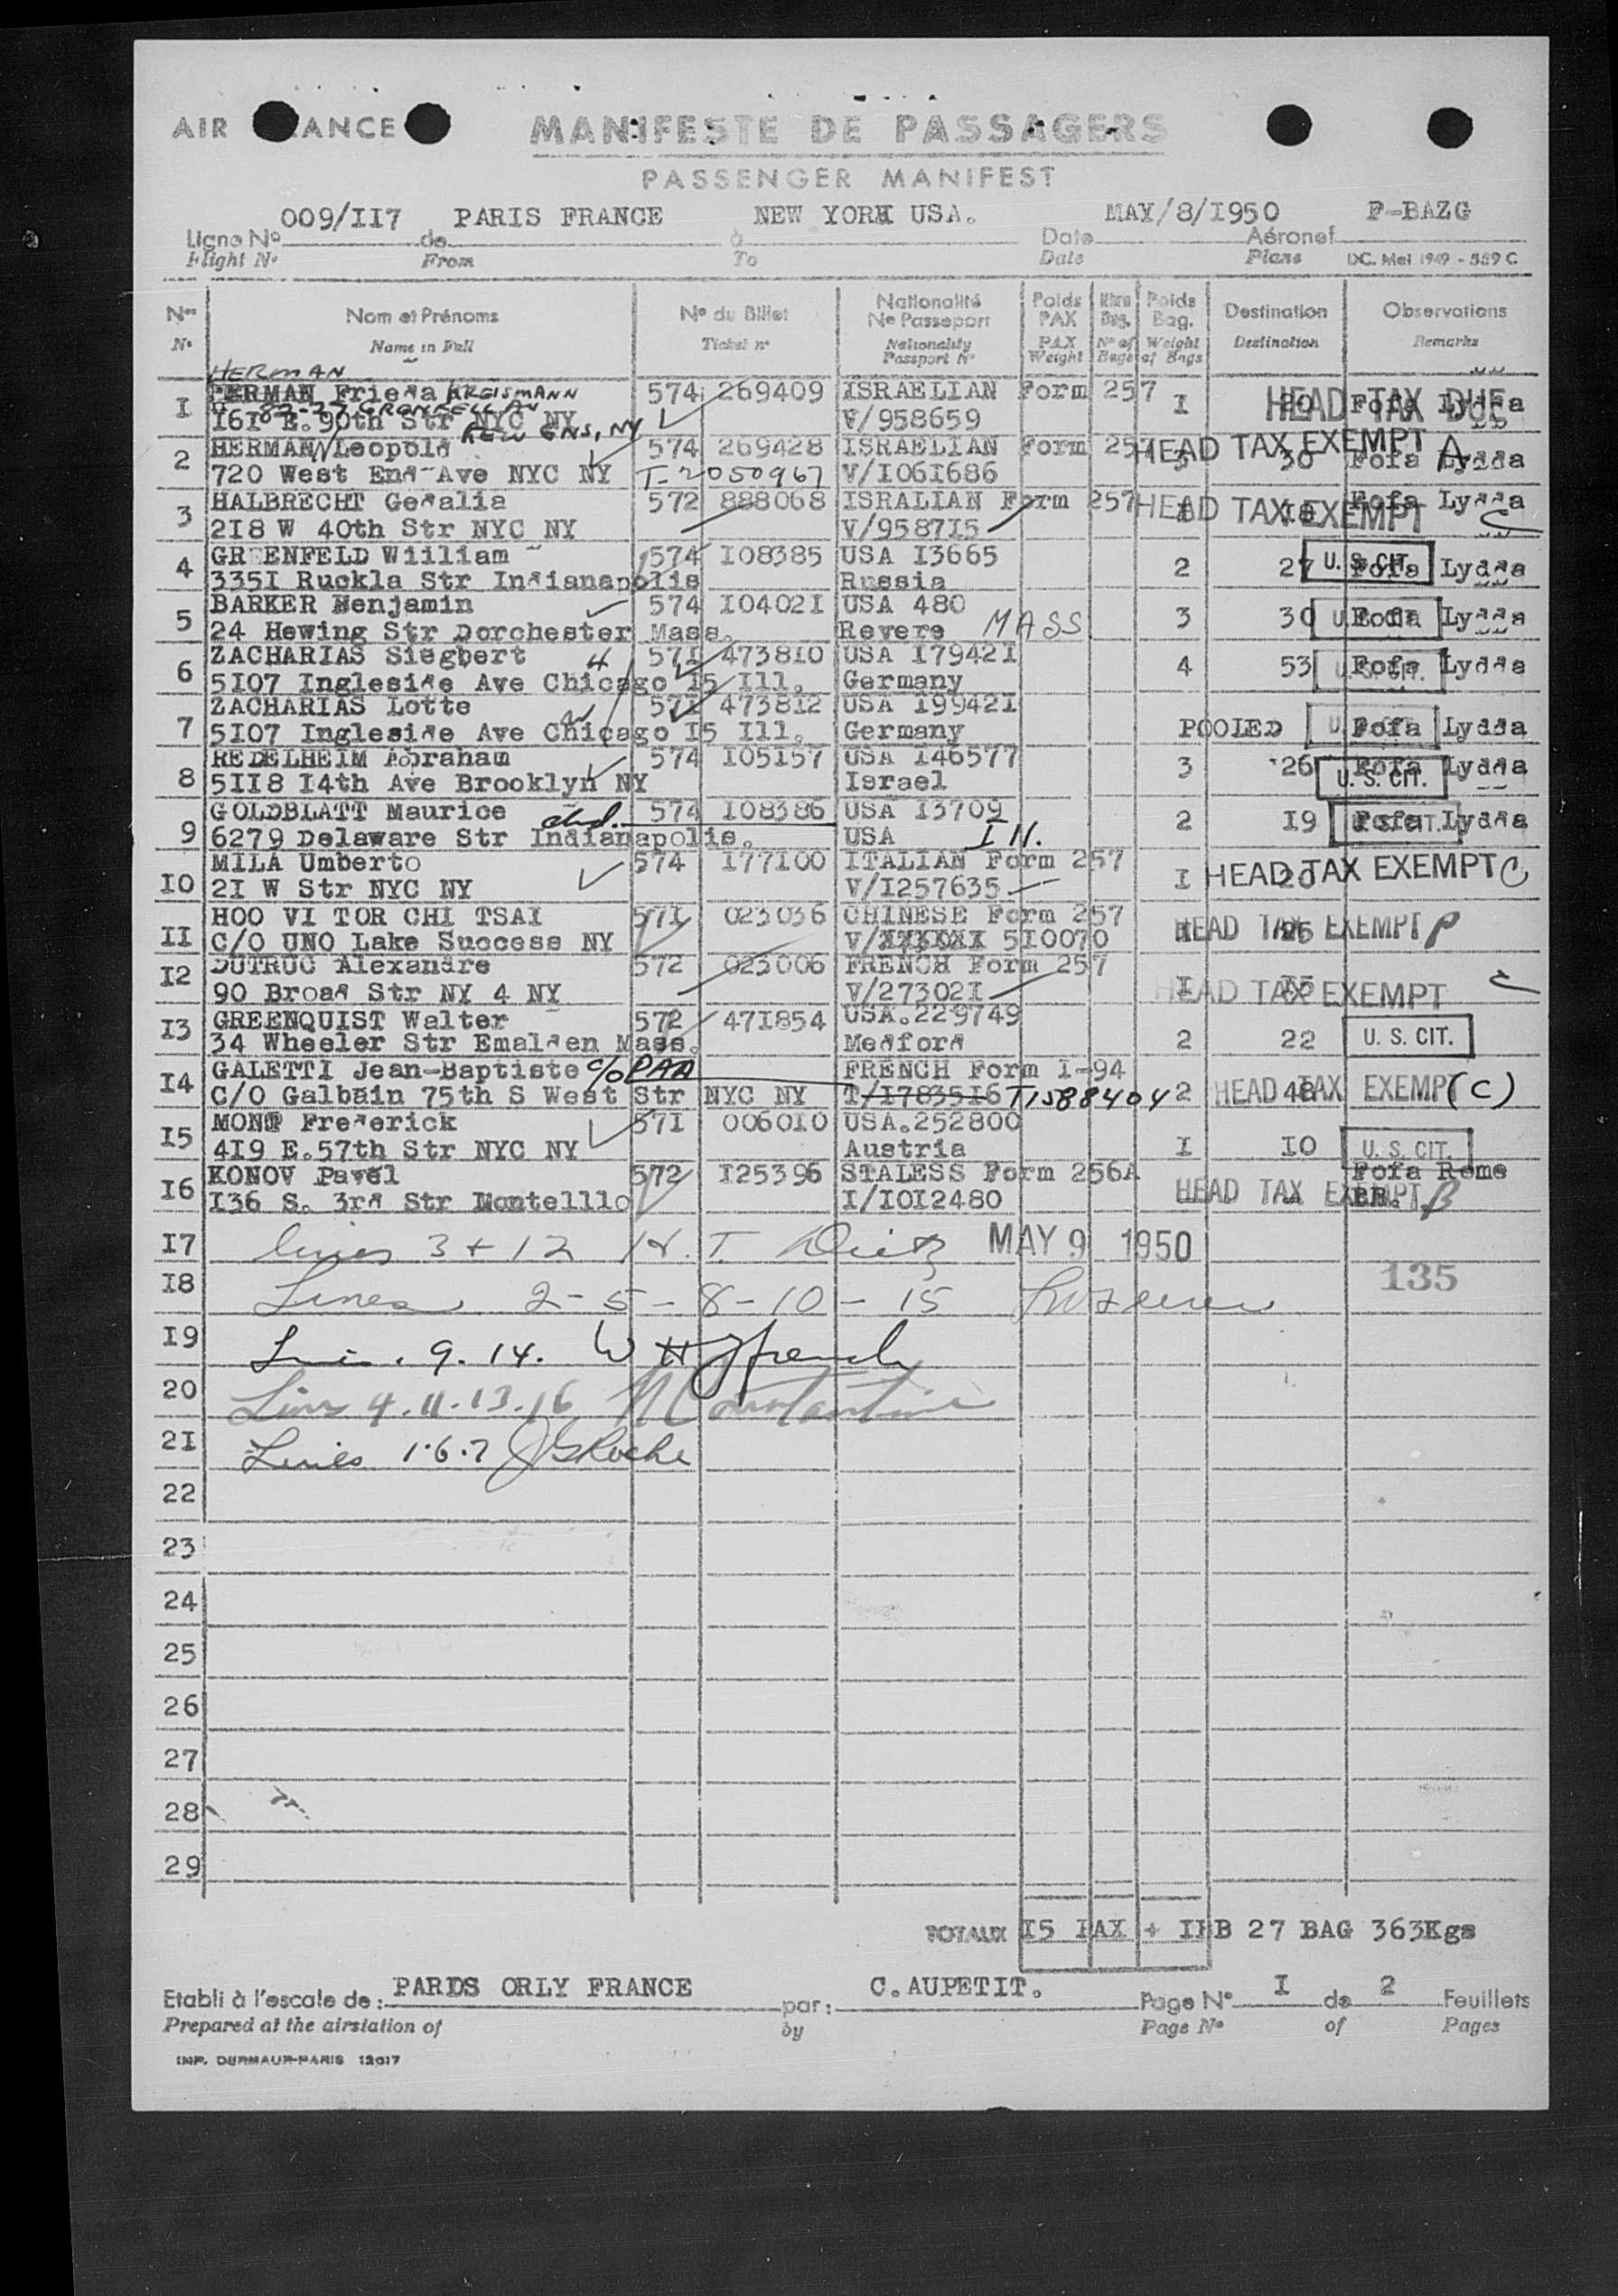 AIR ANCE MANIFESTE DE PASSAGERS
PASSENGER MANIFEST
009/II7 PARIS FRANCE NEW YORK USA. MAY/8/I950 F-BAZG
Ligne Nº de à Date Aéronef
Flight Nº From To Date Plane DC. Mai 1949 - 559 C
Nos Nom et Prénoms Nº du Billet Nationalité Nº Passeport Poids PAX Nbre Bag. Poids Bag. Destination Observations
Nº Name in Full Ticket nº Nationality Passport Nº PAX Weight Nº of Bags Weight of Bags Destination Remarks
HERMAN
I HERMAN Frieda KREISMANN 574 269409 ISRAELIAN Form 257 HEAD TAX DUE
I6I E. 90th Str NYC NY KEW GNS, NY V/958659 I 20 Fofa Lydda
2 HERMANN Leopold 574 269428 ISRAELIAN Form 257 HEAD TAX EXEMPT A
720 West End Ave NYC NY T-2050967 V/I06I686 3 30 Fofa Lydda
3 HALBRECHT Gedalia 572 888068 ISRALIAN Form 257 HEAD TAX EXEMPT C Fofa Lydda
2I8 W 40th Str NYC NY V/9587I5 I I8
4 GREENFELD Wiilliam 574 I08385 USA I3665 U. S. CIT.
335I Ruckla Str Indianapolis Russia 2 27 Fofa Lydda
5 BARKER Benjamin 574 I0402I USA 480
24 Hewing Str Dorchester Mass. Revere MASS 3 30 U. S. CIT. Fofa Lydda
6 ZACHARIAS Siegbert 57I 4738I0 USA I7942I
5I07 Ingleside Ave Chicago I5 Ill. Germany 4 53 U. S. CIT. Fofa Lydda
7 ZACHARIAS Lotte 57I 4738I2 USA I9942I
5I07 Ingleside Ave Chicago I5 Ill. Germany POOLED U. S. CIT. Fofa Lydda
8 REDELHEIM Abraham 574 I05I57 USA I46577
5II8 I4th Ave Brooklyn NY Israel 3 26 U. S. CIT. Fofa Lydda
9 GOLDBLATT Maurice 574 I08386 USA I3709
6279 Delaware Str Indianapolis. USA IN. 2 I9 U. S. CIT. Fofa Lydda
I0 MILA Umberto 574 I77I00 ITALIAN Form 257 HEAD TAX EXEMPT C
2I W Str NYC NY V/I257635 I 20
II HOO VI TOR CHI TSAI 57I 023036 CHINESE Form 257 HEAD TAX EXEMPT
C/O UNO Lake Success NY V/XXXXXX 5I0070
I2 DUTRUC Alexandre 572 023006 FRENCH Form 257
90 Broad Str NY 4 NY V/27302I I I5 HEAD TAX EXEMPT C
I3 GREENQUIST Walter 572 47I854 USA.229749
34 Wheeler Str Emalden Mass. Medford 2 22 U. S. CIT.
I4 GALETTI Jean-Baptiste C/O PAA FRENCH Form I-94
C/O Galbain 75th S West Str NYC NY T/I7835I6 T1588404 2 48 HEAD TAX EXEMPT (C)
I5 MONT Frederick 57I 0060I0 USA.252800
4I9 E.57th Str NYC NY Austria I I0 U. S. CIT.
I6 KONOV Pavel 572 I25396 STALESS Form 256A Fofa Rome
I36 S. 3rd Str Montelllo I/I0I2480 HEAD TAX EXEMPT B BB.
I7 lines 3 + 12 H. T. Dietz MAY 9 1950
I8 Lines 2-5-8-10-15 135
I9 9. 14. W H French
20 Lines 4. 11. 13. 16 Constantine
2I Lines 1.6.7 JGRoche
22
23
24
25
26
27
28
29
TOTAUX I5 PAX + IBB 27 BAG 363Kgs
Etabli à l'escale de : PARDS ORLY FRANCE par : C.AUPETIT. Page Nº I de 2 Feuillets
Prepared at the airstation of by Page Nº of Pages
IMP. DURMAUR-PARIS 12017